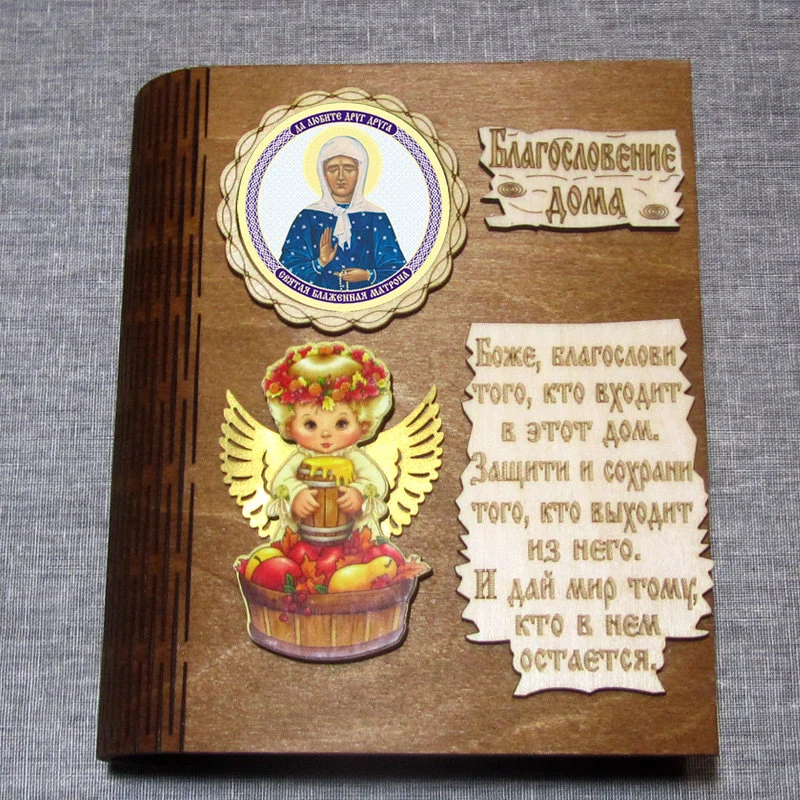 ДА ЛЮБИТЕ ДРУГ ДРУГА
СВЯТАЯ БЛАЖЕННАЯ МАТРОНА
Благословение
дома
Боже, благослови
того, кто входит
в этот дом.
Защити и сохрани
того, кто выходит
из него.
И дай мир тому,
кто в нем
остается.